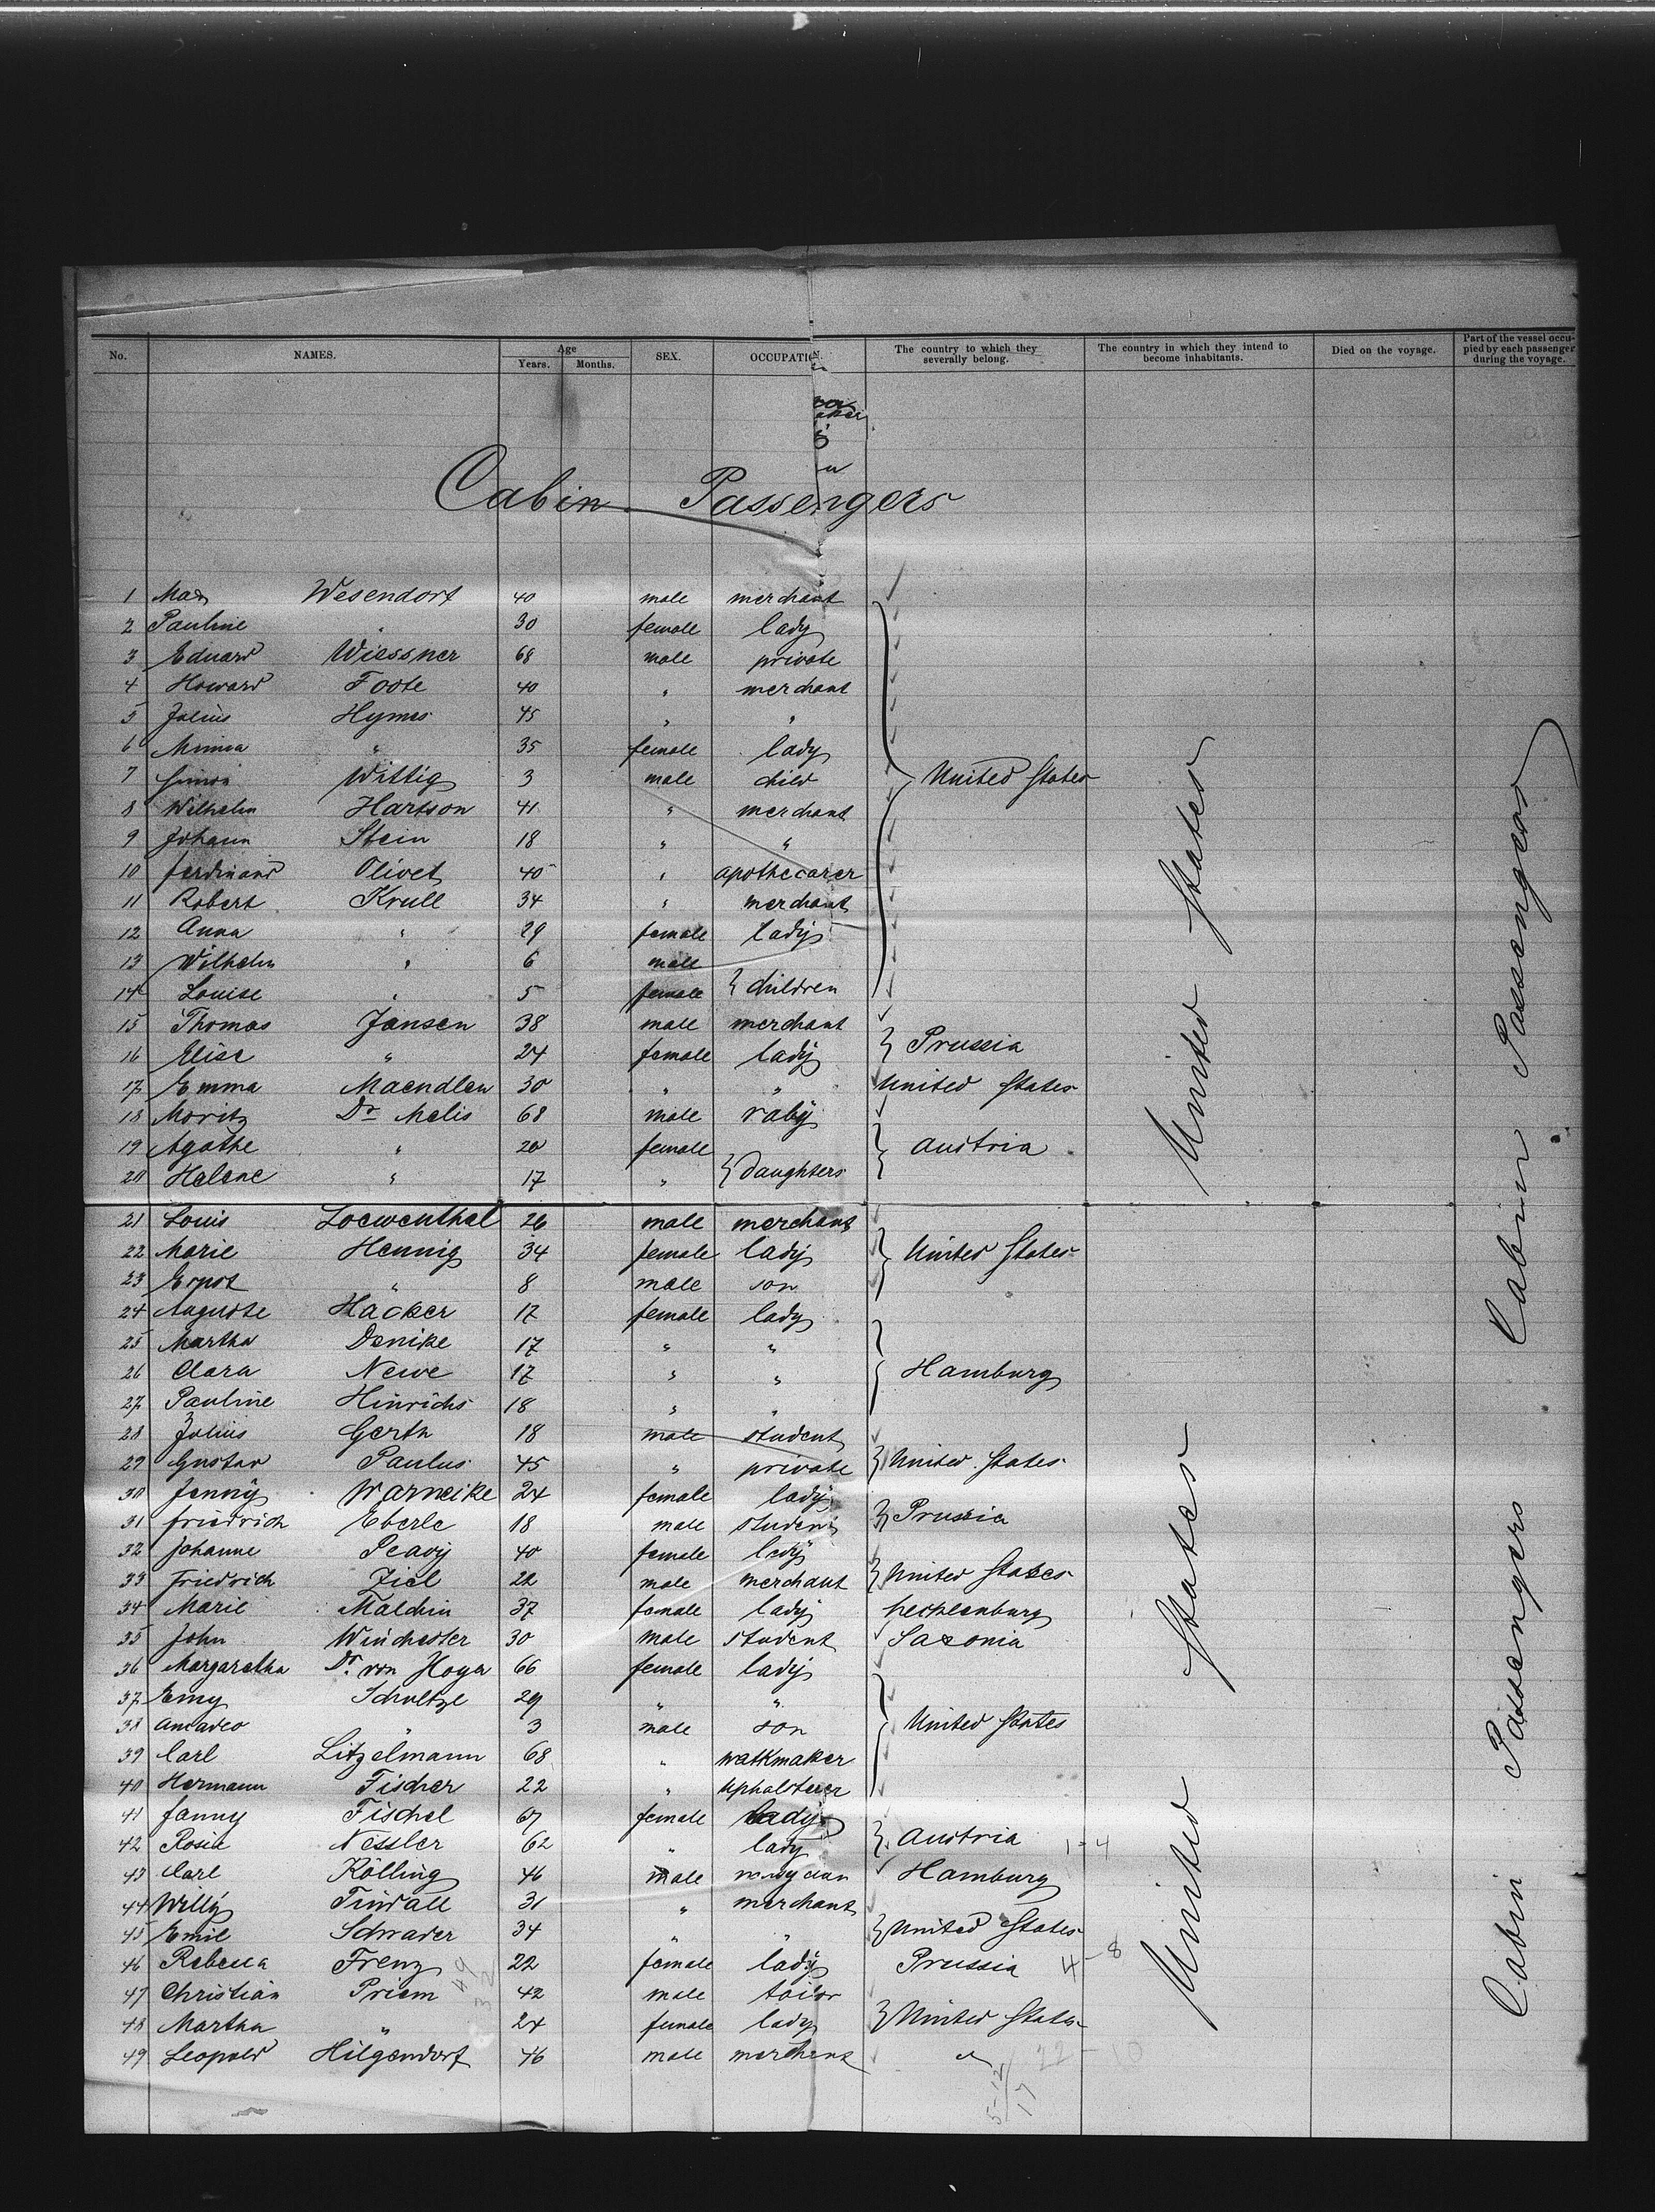 No. NAMES. Age Years. Months. SEX. OCCUPATION. The country to which they severally belong. The country in which they intend to become inhabitants. Died on the voyage. Part of the vessel occupied by each passenger during the voyage.
Cabin Passengers
1 Max Wesendorf 40 male merchant
2 Pauline " 30 female lady
3 Eduard Wiessner 68 male private
4 Howard Foote 40 " merchant
5 Julius Hymes 45 " "
6 Minna " 35 female lady
7 Simon Wittig 3 male child United States
8 Wilhelm Hartson 41 " merchant
9 Johann Stein 18 " "
10 Ferdinand Olivet 40 " apothecarer
11 Robert Krull 34 " merchant
12 Anna " 29 female lady
13 Wilhelm " 6 male
14 Louise " 5 female } children
15 Thomas Jansen 38 male merchant
16 Elise " 24 female lady } Prussia
17 Emma Maendlen 30 " " United States
18 Moritz Dr Melis 68 male raby
19 Agathe " 20 female } Austria
20 Helene " 17 " } daughters
21 Louis Loewenthal 26 male merchant
22 Marie Hennig 34 female lady } United States
23 Ernst " 8 male son
24 Auguste Häcker 17 female lady
25 Martha Denike 17 " "
26 Clara Newe 17 " " Hamburg
27 Pauline Hinrichs 18 " "
28 Julius Gerth 18 male student
29 Gustav Paulus 45 " private } United States
30 Jenny Warneike 24 female lady
31 Friedrich Eberle 18 male student } Prussia
32 Johanne Peavy 40 female lady
33 Friedrich Ziel 22 male merchant } United States
34 Marie Malchin 37 female lady Mecklenburg
35 John Winchester 30 male student Saxonia
36 Margaretha Dr. von Hoya 66 female lady
37 Emy Schultze 29 " "
38 Amadeo " 3 male son United States
39 Carl Litzelmann 68 " watkmaker
40 Hermann Fischer 22 " uphalsterer
41 Fanny Fischel 67 female lady
42 Rosie Nessler 62 " lady } Austria 1-4
43 Carl Kölling 46 male Hamburg
44 Willy Tindall 31 " merchant
45 Emil Schrader 34 " " } United States
46 Rebecca Frenz 22 female lady Prussia 4-8
47 Christian Priem 42 male tailor
48 Martha " 24 female lady } United States
49 Leopold Hilgendorf 46 male merchant "
22-10
5-12/17
49
32
United States
United States
Cabin Passengers
Cabin Passengers